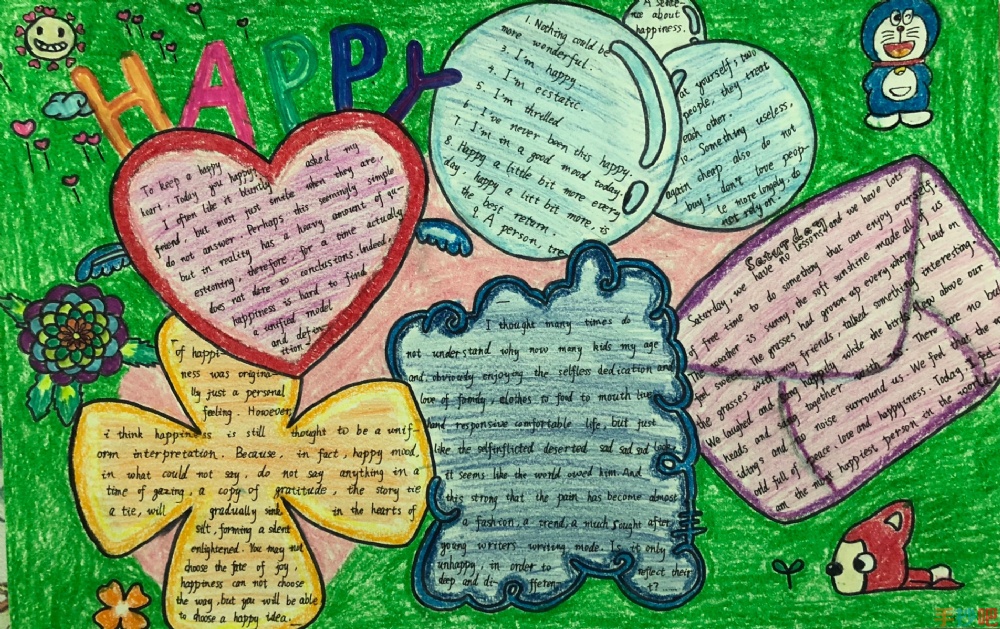 HAPPY
To keep a happy
heart. Today you happy
asked my
I often like it bluntly
friend, but most just smile when they are,
do not answer. Perhaps this seemingly simple
but in reality has a heavy amount of qu-
estioning, therefore, for a time actually
does not dare to conclusions. Indeed,
happiness is hard to find
a unified model.
and defin-
ition
of happi-
ness was origina-
lly just a personal
feeling. However,
i think happiness is still thought to be a unif-
orm interpretation. Because, in fact, happy mood,
in what could not say, do not say anything in a
time of gazing, a copy of gratitude, the story tie
a tie, will gradually sink in the hearts of
silt, forming a silent
enlightened. You may not
choose the fate of joy,
happiness can not choose
the way, but you will be able
to choose a happy idea.
A sente-
nce about
happiness.
1. Nothing could be
more wonderful.
3. I'm happy.
4. I'm ecstatic.
5. I'm thrilled
6. I've never been this happy.
7. I'm in a good mood today.
8. Happy a little bit more every
day, happy a litt bit more, is
the best return.
9. A person, tre
at yourself, two
people, they treat
each other.
10. Something useless,
again cheap, also do not
buy; don't love peop-
le more lonely, do
not rely on.
I thought many times do
not understand why now many kids my age
and, obviously enjoying the selfless dedication and
love of family, clothes to food to mouth live
and responsive comfortable life, but just
like the selfinflicted deserted sad sad sad look,
it seems like the world owed him. And
this strong that the pain has become almost
a fashion, a srend, a much sought after
young writers writing mode. Is it only
unhappy, in order to reflect their
deep and di- fferen- t?
Saturday
Saturday, we have no lessons and we have lots
of free time to do something that can enjoy ourself.
The weather is sunny, the soft sunshine made all of us
feel sweet. The grasses had grown up everywhere, I laid on
the grasses with my friends, talked something interesting.
We laughed and sang happily while the birds flew above our
heads and sang together with us. There are no bad
idings and no noise surround us. We feel that the
orld full of peace, love and happiness. Today I
am the most happiest person in the world